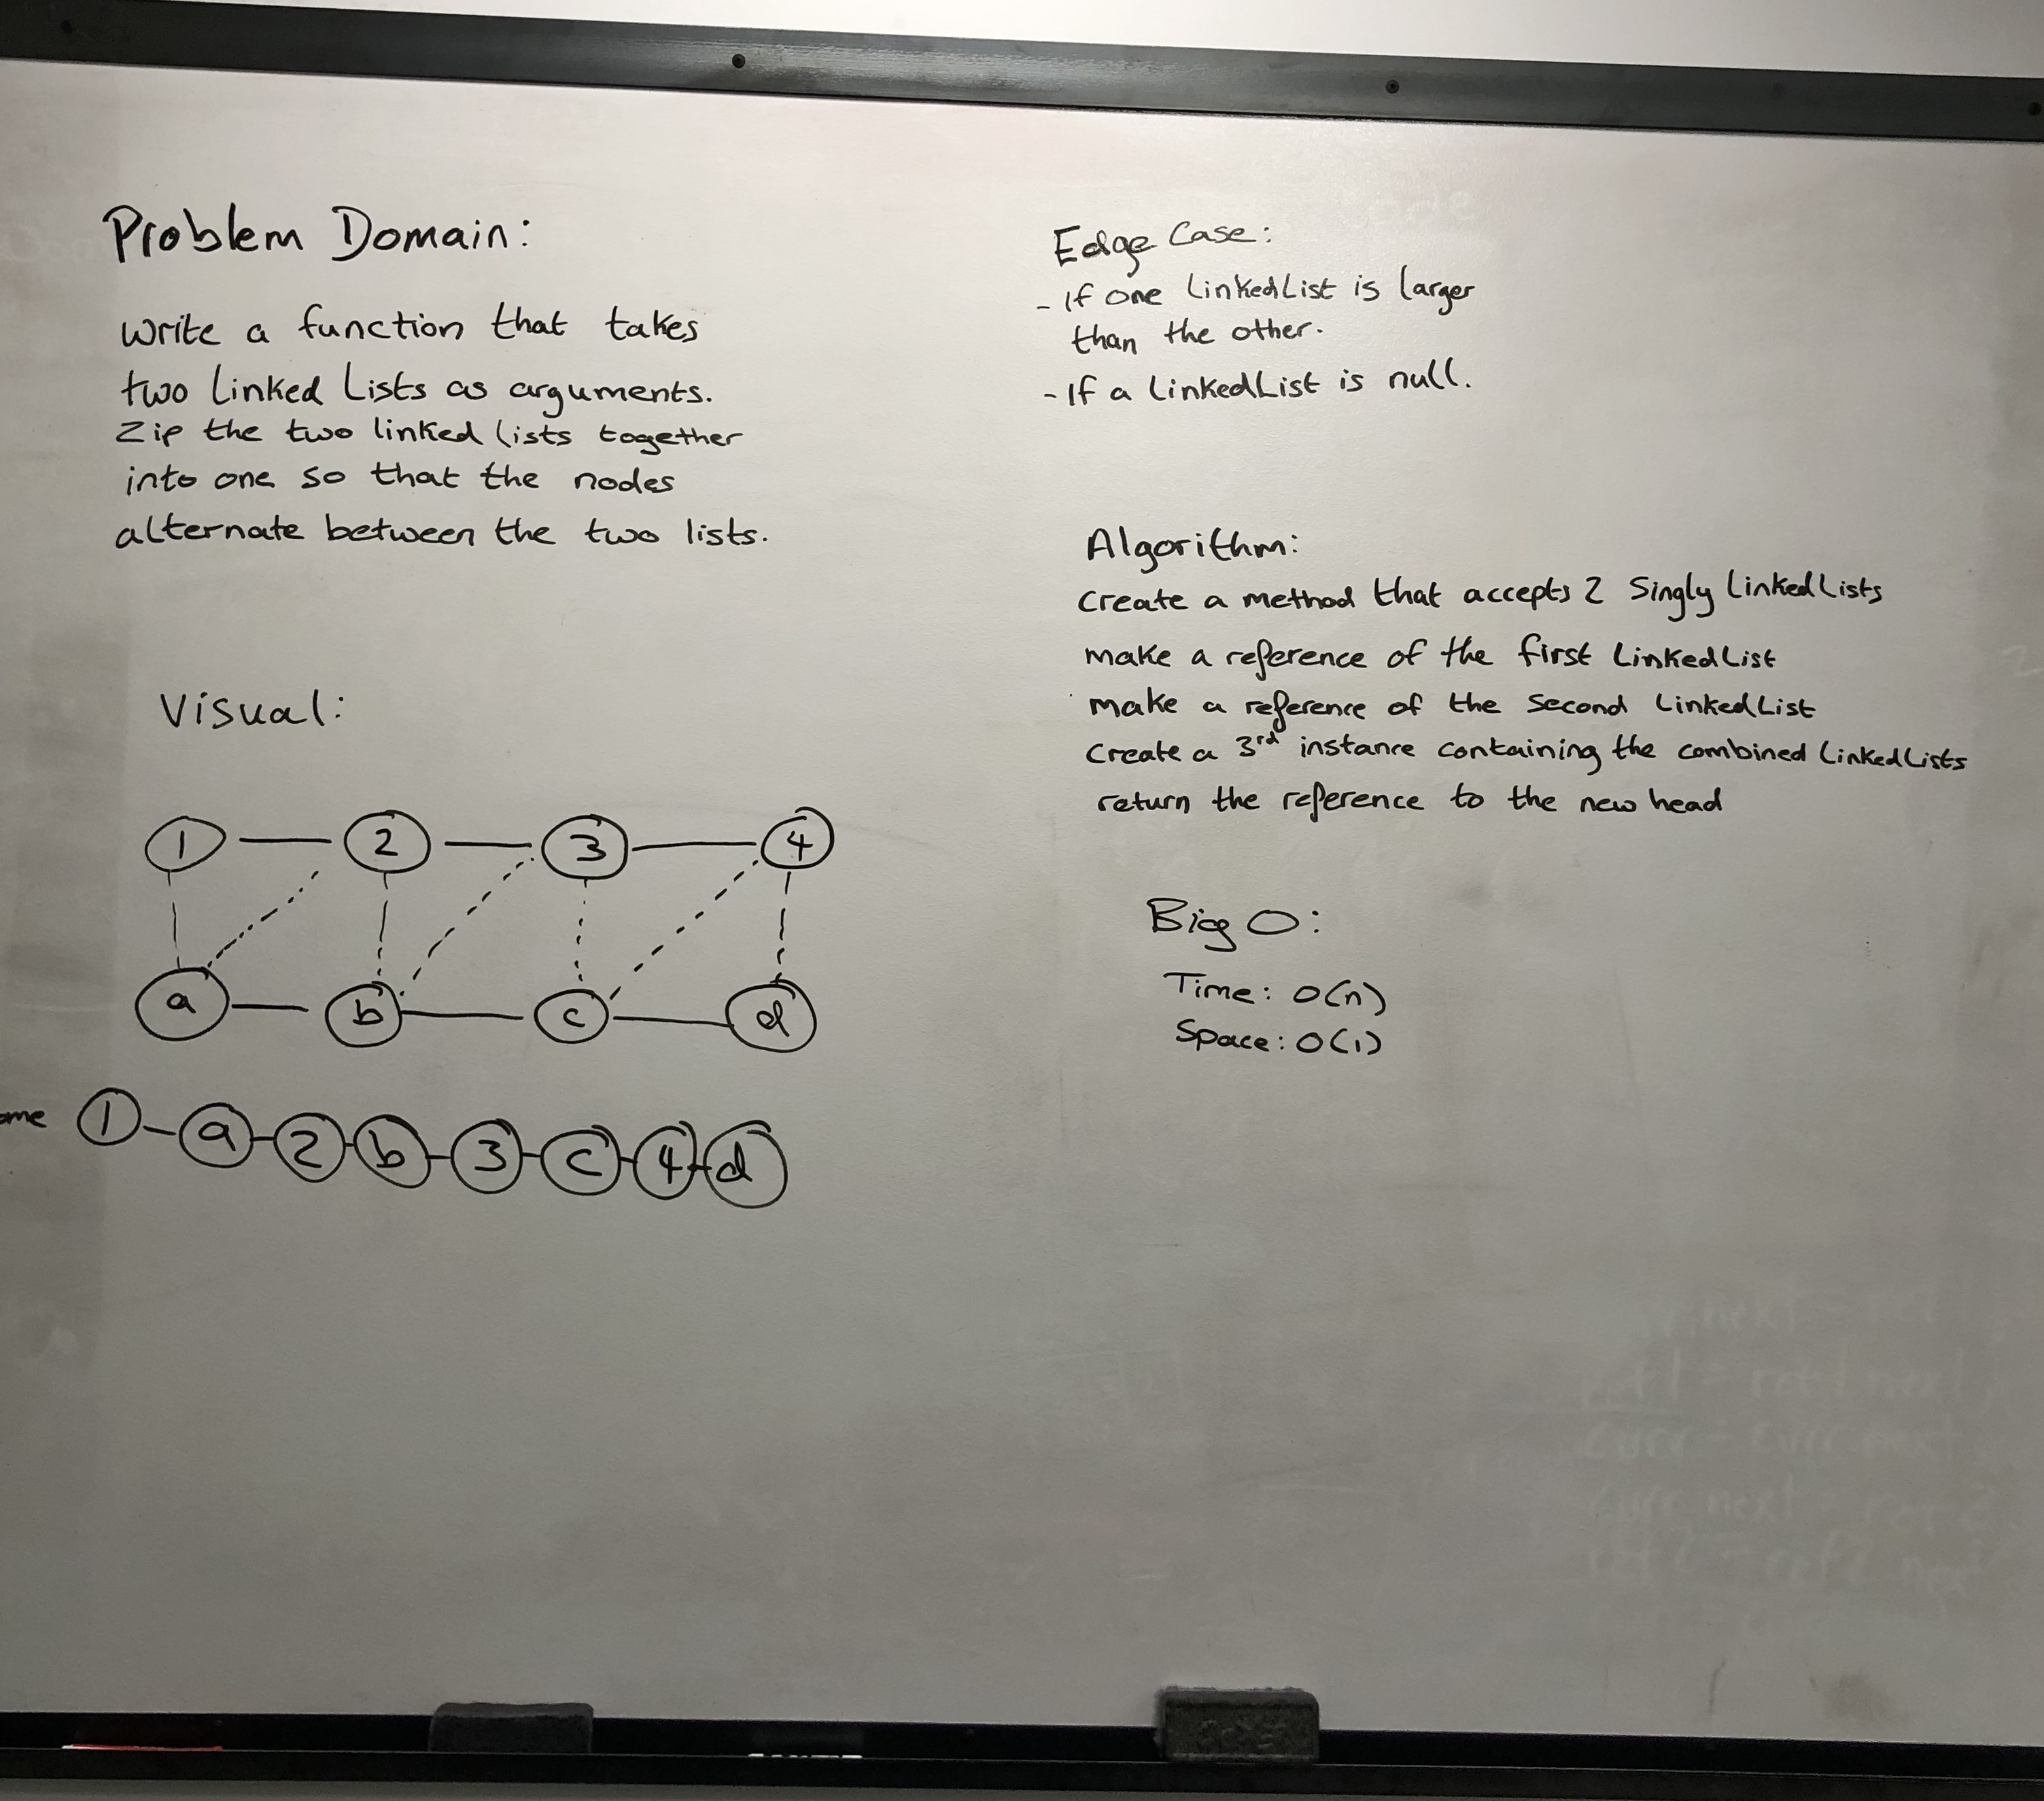 Problem Domain:
write a function that takes
two linked Lists as arguments.
Zip the two linked lists together
into one so that the nodes
alternate between the two lists.
Visual:
1 2 3 4
a b c d
1 a 2 b 3 c 4 d
Edge Case:
- If one LinkedList is larger
than the other.
- If a LinkedList is null.
Algorithm:
Create a method that accepts 2 Singly LinkedLists
make a reference of the first LinkedList
make a reference of the second LinkedList
Create a 3rd instance containing the combined LinkedLists
return the reference to the new head
Big O:
Time: O(n)
Space: O(1)
curr = curr.next